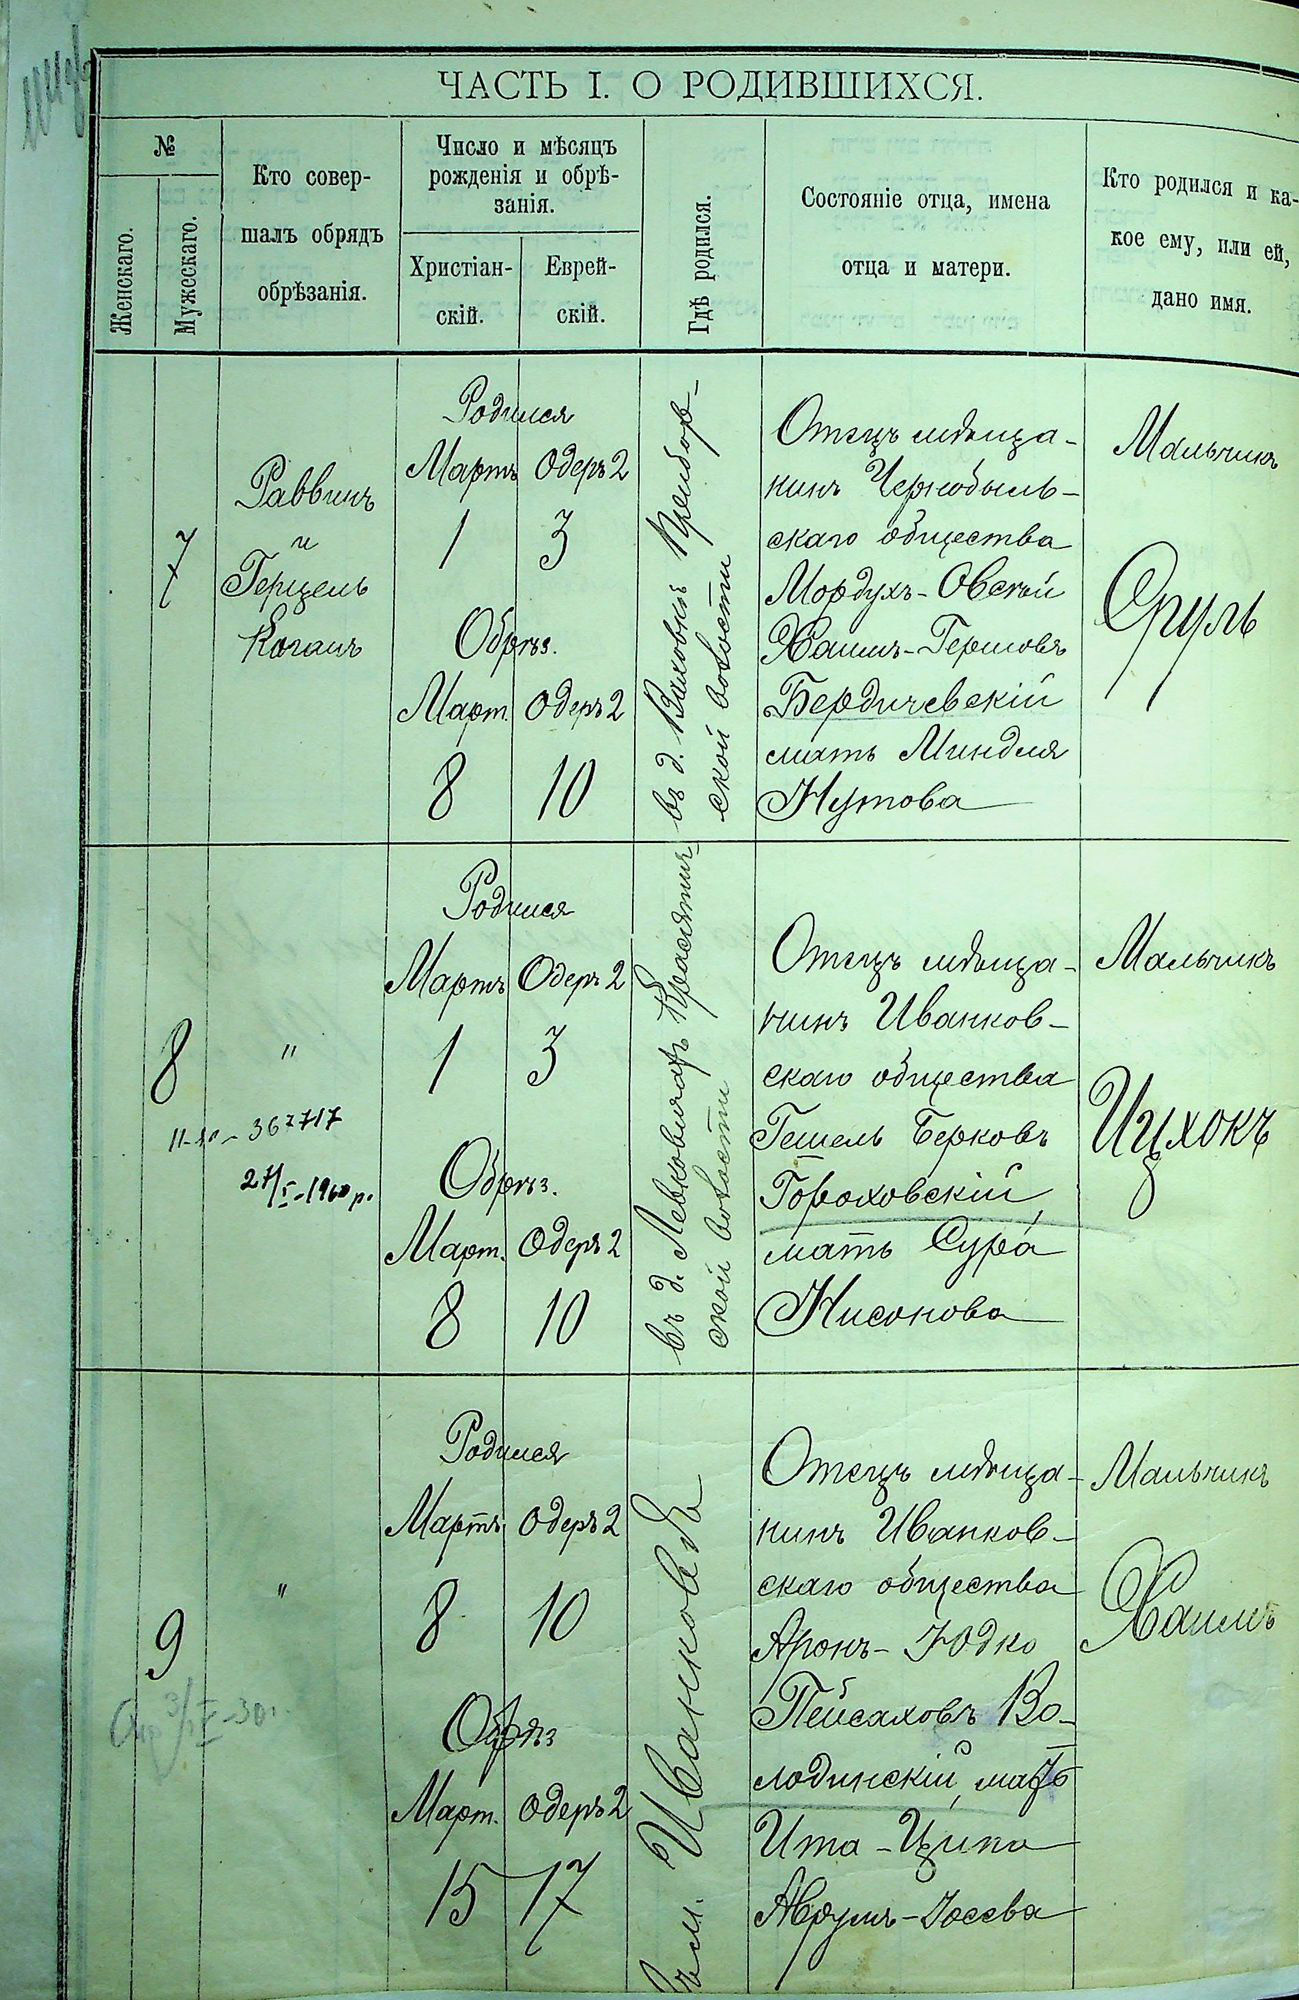 ЧАСТЬ I. О РОДИВШИХСЯ.
№
Женскаго.
Мужескаго.
Кто совер-
шалъ обрядъ
обрѣзанія.
Число и мѣсяцъ
рожденія и обрѣ-
занія.
Христіан-
скій.
Еврей-
скій.
Гдѣ родился.
Состояніе отца, имена
отца и матери.
Кто родился и ка-
кое ему, или ей,
дано имя.
7
Раввинъ
и
Герцель
Коганъ
Родился
Мартъ Одеръ 2
1 3
Обрѣз.
Март. Одеръ 2
8 10
въ д.
ской волости
Отецъ мѣща-
нинъ Чернобыль-
скаго общества
Мордухъ-Овсей
Хаимъ-Гершовъ
Бердичевскій
мать Миндля
Нутова
Мальчикъ
Сруль
8
"
27/I-1960 р.
Родился
Мартъ Одеръ 2
1 3
Обрѣз.
Март. Одеръ 2
8 10
въ д. Левковичахъ Красятич-
ской волости
Отецъ мѣща-
нинъ Иванков-
скаго общества
Гешель Берковъ
Гороховскій,
мать Сура
Нисонова
Мальчикъ
Ицхокъ
9
"
Родился
Мартъ Одеръ 2
8 10
Обрѣз
Март. Одеръ 2
15 17
въ м. Иванковѣ
Отецъ мѣща-
нинъ Иванков-
скаго общества
Аронъ-Юдко
Пейсаховъ Во-
лодинскій, мать
Ита-Ципа
Аврумъ-Іосева
Мальчикъ
Хаимъ